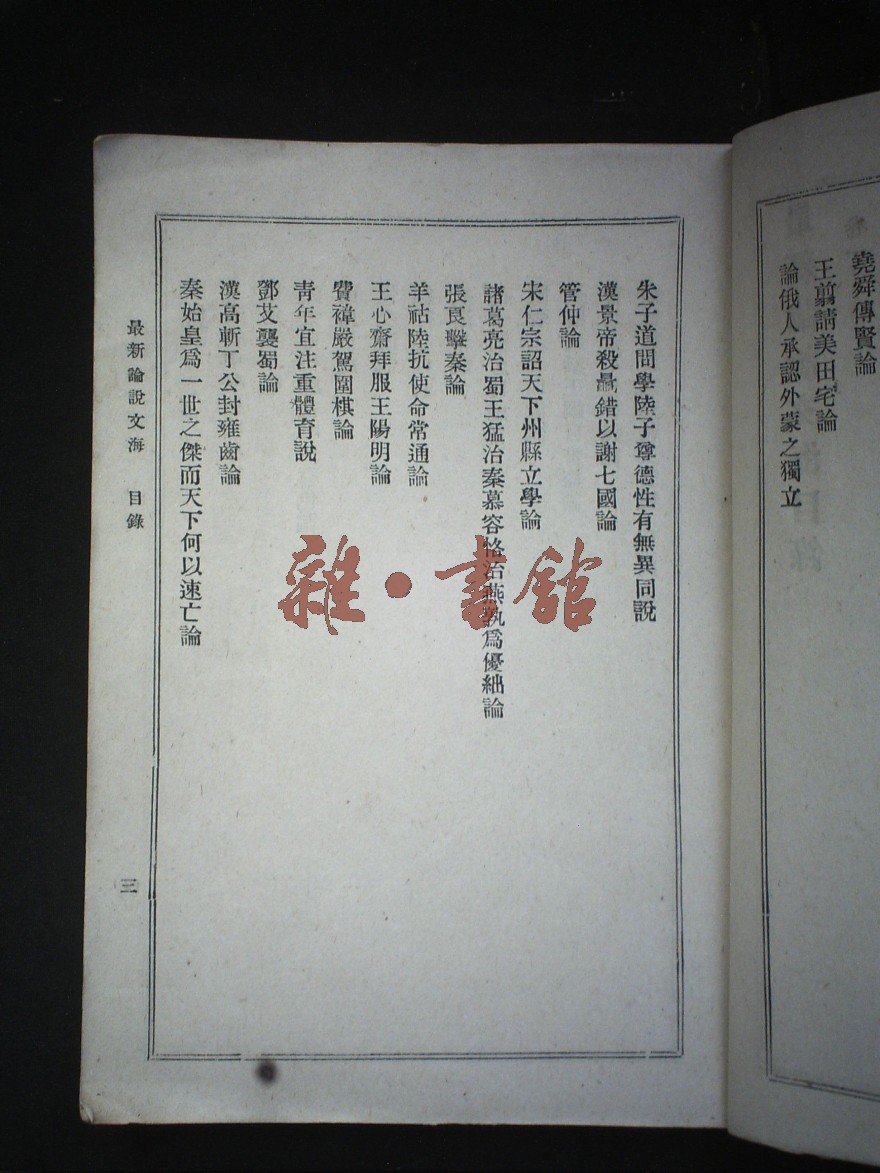 堯舜傳賢論
王翦請美田宅論
論俄人承認外蒙之獨立
朱子道問學陸子尊德性有無異同說
漢景帝殺鼂錯以謝七國論
管仲論
宋仁宗詔天下州縣立學論
諸葛亮治蜀王猛治秦慕容恪治燕孰爲優絀論
張良擊秦論
羊祜陸抗使命常通論
王心齋拜服王陽明論
費禕嚴駕圍棋論
青年宜注重體育說
鄧艾襲蜀論
漢高斬丁公封雍齒論
秦始皇爲一世之傑而天下何以速亡論
最新論說文海 目錄
三
雜·書館